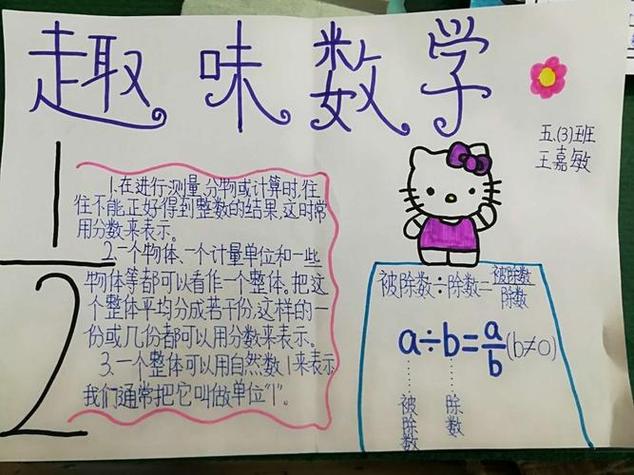 趣味数学
五.(3)班
王嘉敏
1
2
1.在进行测量、分物或计算时,往
往不能正好得到整数的结果,这时常
用分数来表示。
2.一个物体、一个计量单位和一些
物体等都可以看作一个整体。把这
个整体平均分成若干份,这样的一
份或几份都可以用分数来表示。
3.一个整体可以用自然数1来表示
我们通常把它叫做单位"1"。
被除数÷除数=被除数/除数
a÷b=a/b(b≠0)
被除数
除数